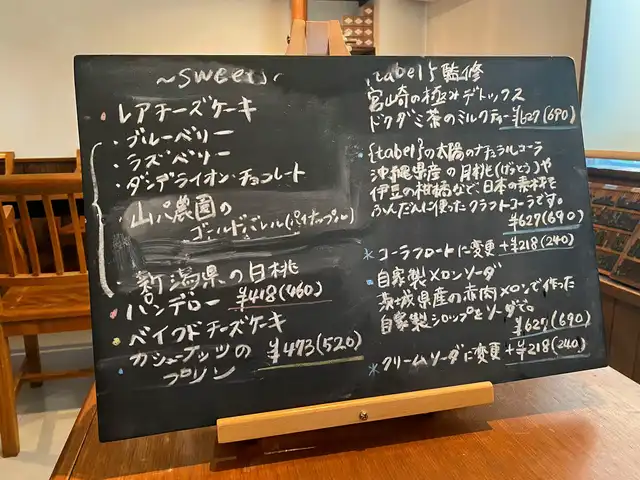 ~sweets~
・レアチーズケーキ
・ブルーベリー
・ラズベリー
・ダンデライオン・チョコレート
・山パ農園の
ゴールドバレル(パイナップル)
・新潟県の白桃
・パンデロー ¥418(460)
・ベイクドチーズケーキ
・カシューナッツの ¥473(520)
プリン
{tabel}監修
宮崎の極みデトックス
ドクダミ茶のミルクティー ¥627(690)
・{tabel}の太陽のナチュラルコーラ
沖縄県産の月桃(げっとう)や
伊豆の柑橘など、日本の素材を
ふんだんに使ったクラフトコーラです。
¥627(690)
*コーラフロートに変更 +¥218(240)
・自家製メロンソーダ
茨城県産の赤肉メロンで作った
自家製シロップをソーダで。
¥627(690)
*クリームソーダに変更 +¥218(240)